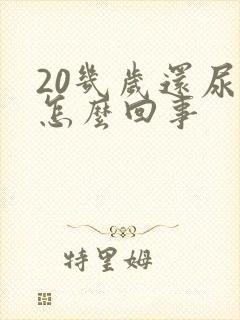 20幾歲還尿
怎麼回事
特里姆